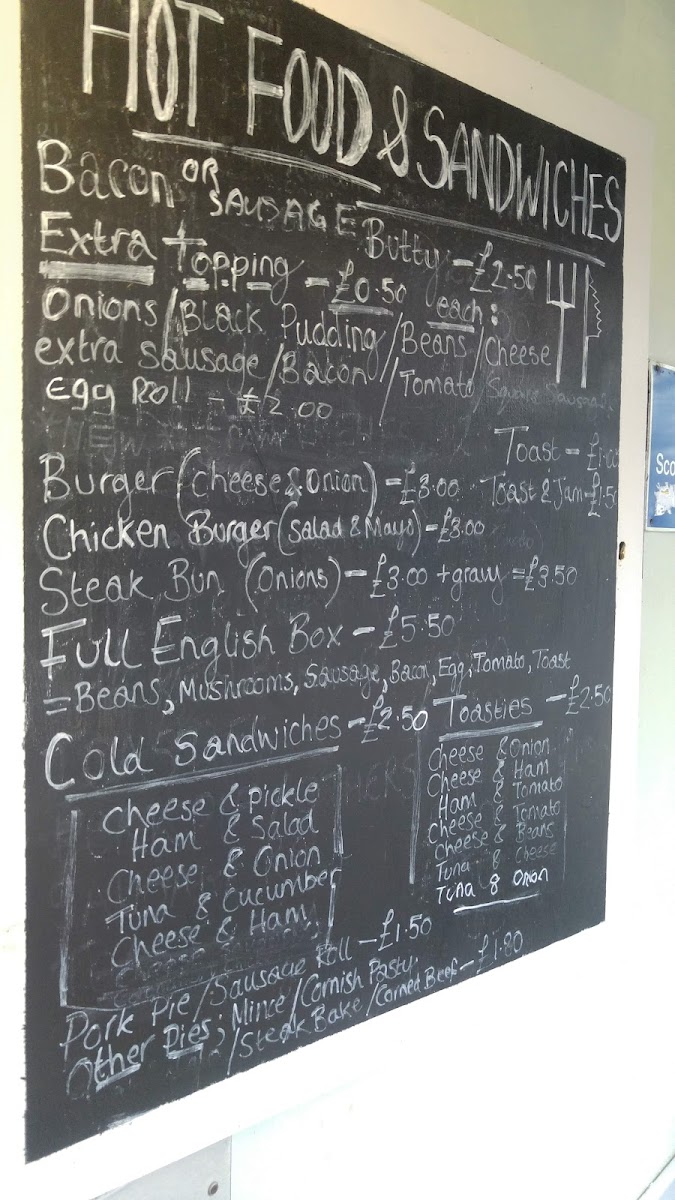 HOT FOOD & SANDWICHES
Bacon OR SAUSAGE Butty - £2.50
Extra Topping - £0.50 each:
Onions/Black Pudding/Beans/Cheese
extra sausage/Bacon/Tomato/Square Sausage
Egg Roll - £2.00
Toast - £1.00
Burger (cheese & Onion) - £3.00
Toast & Jam - £1.50
Chicken Burger (Salad & Mayo) - £3.00
Steak Bun (Onions) - £3.00 + gravy = £3.50
Full English Box - £5.50
= Beans, Mushrooms, Sausage, Bacon, Egg, Tomato, Toast
Cold Sandwiches - £2.50
Cheese & pickle
Ham & Salad
Cheese & Onion
Tuna & Cucumber
Cheese & Ham
Toasties - £2.50
Cheese & Onion
Cheese & Ham
Ham & Tomato
Cheese & Tomato
Cheese & Beans
Tuna & Cheese
Tuna & Onion
Pork Pie/Sausage Roll - £1.50
Other Pies; Mince/Cornish Pasty
/Steak Bake/Corned Beef - £1.80
Sco